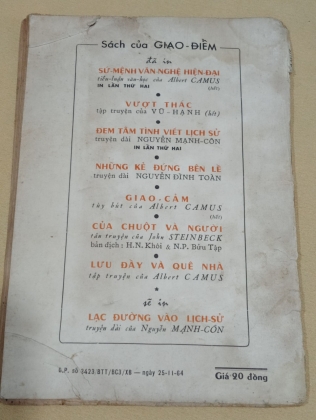 Sách của GIAO-ĐIỂM
đã in
SỨ-MỆNH VĂN NGHỆ HIỆN-ĐẠI
tiểu-luận văn-học của Albert CAMUS
IN LẦN THỨ HAI (hết)
VƯỢT THÁC
tập truyện của VŨ-HẠNH (hết)
ĐEM TÂM TÌNH VIẾT LỊCH SỬ
truyện dài NGUYỄN MẠNH-CÔN
IN LẦN THỨ HAI
NHỮNG KẺ ĐỨNG BÊN LỀ
truyện dài NGUYỄN ĐÌNH TOÀN
GIAO-CẢM
tùy bút của Albert CAMUS
(hết)
CỦA CHUỘT VÀ NGƯỜI
tân truyện của John STEINBECK
bản dịch: H.N. Khôi & N.P. Bửu Tập
LƯU ĐÀY VÀ QUÊ NHÀ
tập truyện của Albert CAMUS
sẽ in
LẠC ĐƯỜNG VÀO LỊCH-SỬ
truyện dài của Nguyễn MẠNH-CÔN
G.P. số 3423/BTT/BC3/XB — ngày 25-11-64
Giá 20 đồng